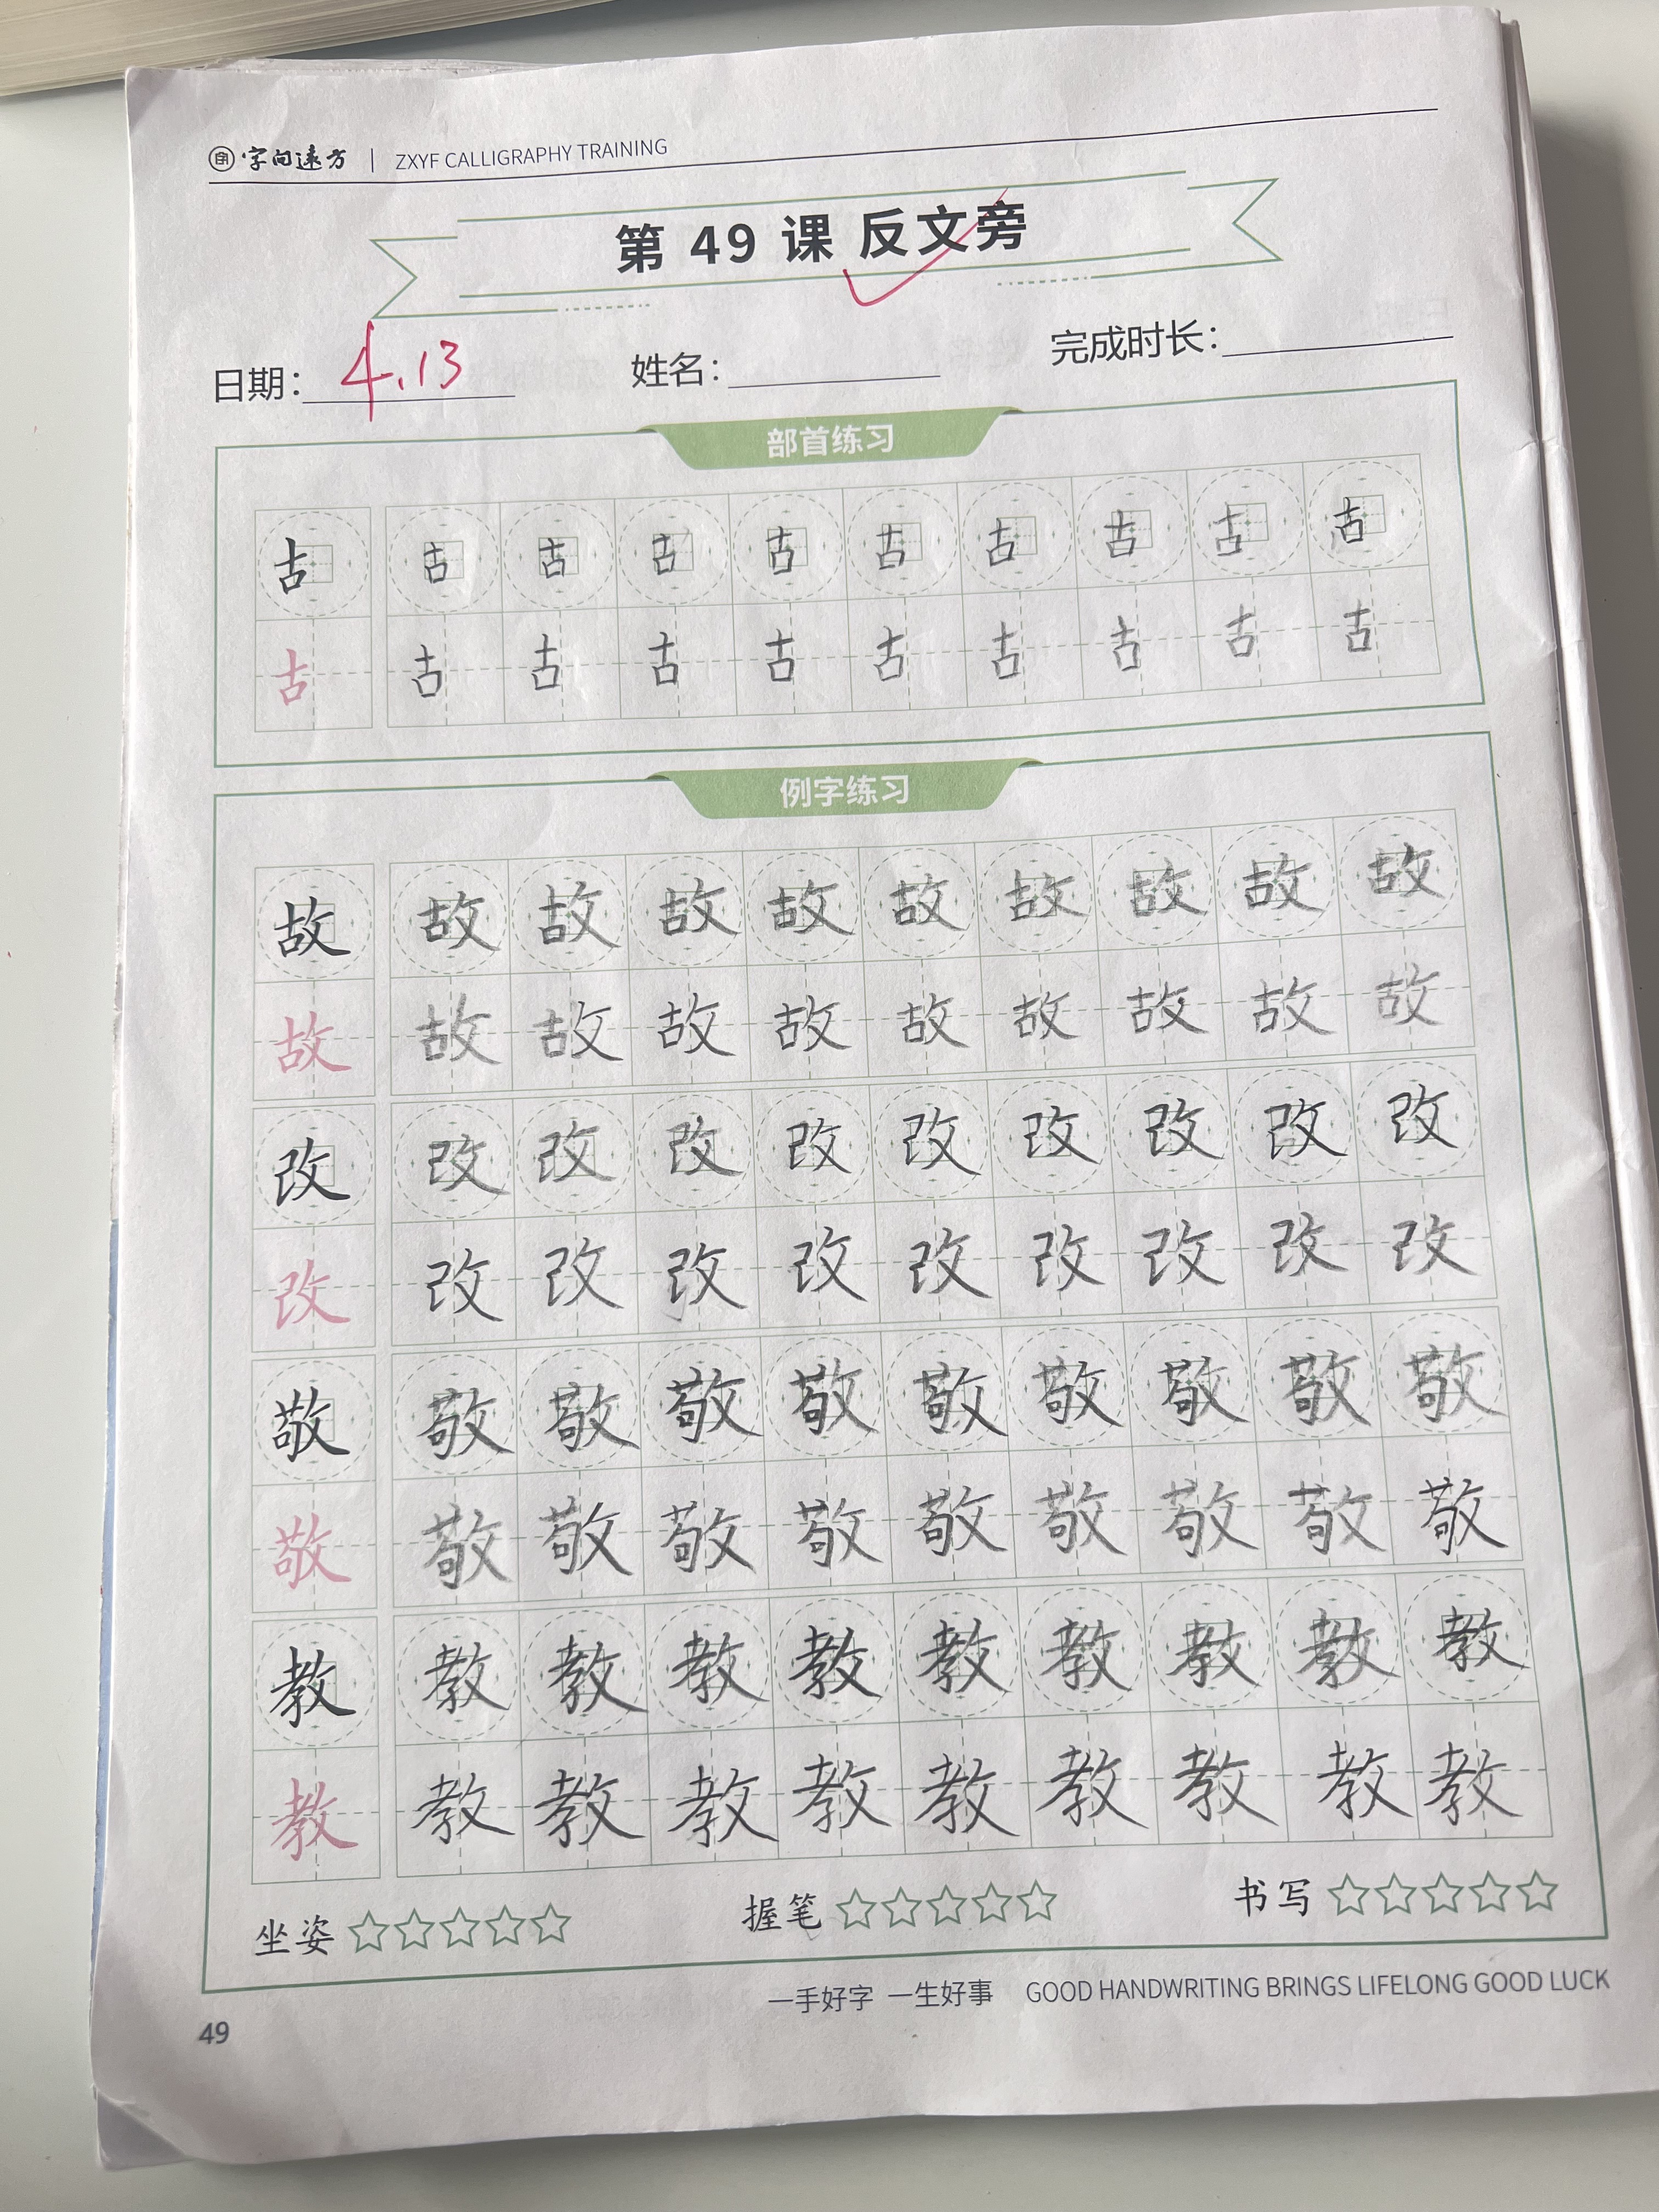 字向远方 | ZXYF CALLIGRAPHY TRAINING
第 49 课 反文旁
日期: 4.13 姓名: 完成时长:
部首练习
古 古 古 古 古 古 古 古 古 古
古 古 古 古 古 古 古 古 古 古
例字练习
故 故 故 故 故 故 故 故 故 故
故 故 故 故 故 故 故 故 故 故
改 改 改 改 改 改 改 改 改 改
改 改 改 改 改 改 改 改 改 改
敬 敬 敬 敬 敬 敬 敬 敬 敬 敬
敬 敬 敬 敬 敬 敬 敬 敬 敬 敬
教 教 教 教 教 教 教 教 教 教
教 教 教 教 教 教 教 教 教 教
坐姿 ☆☆☆☆☆ 握笔 ☆☆☆☆☆ 书写 ☆☆☆☆☆
一手好字 一生好事 GOOD HANDWRITING BRINGS LIFELONG GOOD LUCK
49